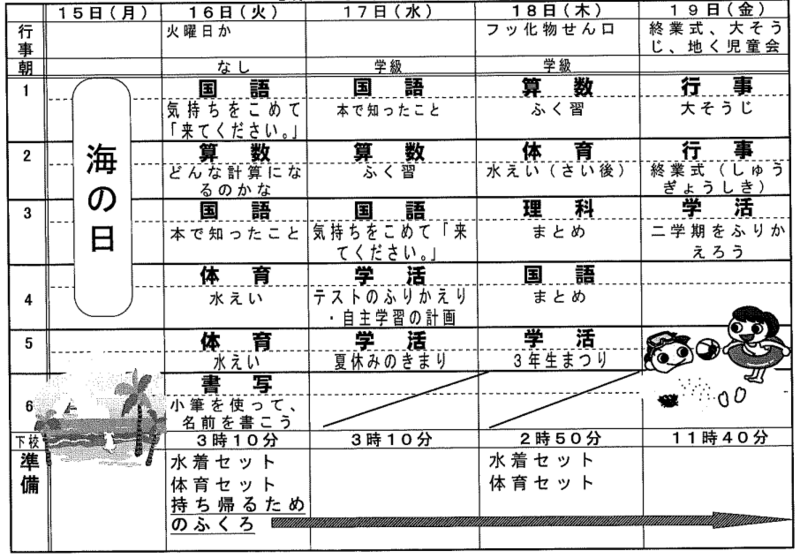 15日(月) 16日(火) 17日(水) 18日(木) 19日(金)
行事 火曜日か フッ化物せん口 終業式、大そうじ、地く児童会
朝 なし 学級 学級
1 国語 国語 算数 行事
気持ちをこめて「来てください。」 本で知ったこと ふく習 大そうじ
海の日
2 算数 算数 体育 行事
どんな計算になるのかな ふく習 水えい(さい後) 終業式(しゅうぎょうしき)
3 国語 国語 理科 学活
本で知ったこと 気持ちをこめて「来てください。」 まとめ 二学期をふりかえろう
4 体育 学活 国語
水えい テストのふりかえり・自主学習の計画 まとめ
5 体育 学活 学活
水えい 夏休みのきまり 3年生まつり
6 書写
小筆を使って、名前を書こう
下校 3時10分 3時10分 2時50分 11時40分
準備 水着セット 水着セット
体育セット 体育セット
持ち帰るためのふくろ